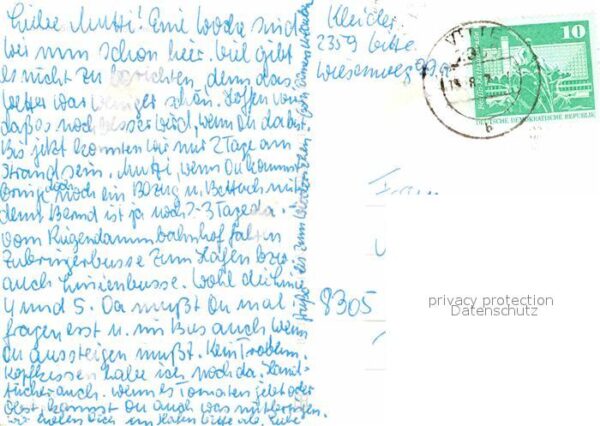 Liebe Mutti! Eine Woche sind
wir nun schon hier. Viel gibt
es nicht zu berichten, denn das
Wetter war weniger schön. Hoffen wir
daß es noch besser wird, wenn Du da bist.
Bis jetzt konnten wir nur 2 Tage am
Strand sein. Mutti, wenn Du kommst
bring doch noch ein Bezug u. Bettuch mit
denn Bernd ist ja noch 2-3 Tage da.
Vom Rügendammbahnhof fahren
Zubringerbusse zum Hafen bzw.
auch Linienbusse. Wohl die Linie
4 und 5. Da mußt Du mal
fragen erst u. im Bus auch wenn
Du aussteigen mußt. Kein Problem.
Kopfkissen habe ich noch da. Hand-
tücher auch. Wenn es Tomaten gibt oder
Obst, kannst Du auch was mitbringen.
wir holen Dich am Hafen
Liebe
Grüße bis zum Wiedersehen
Kleider
2359 Vitte
Wiesenweg
VITTE
10
DEUTSCHE DEMOKRATISCHE REPUBLIK
b
Frau
8305
privacy protection
Datenschutz